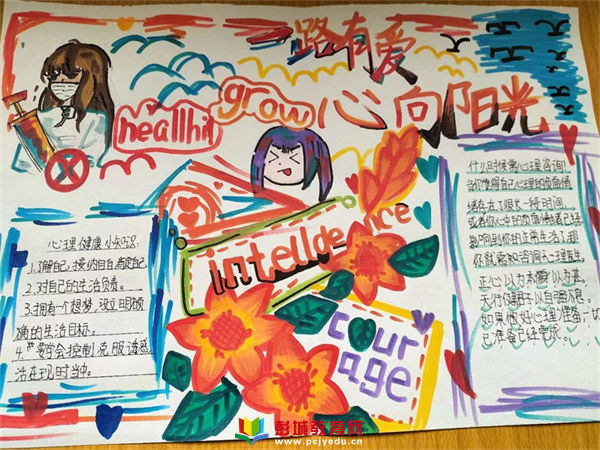 一路有爱
心向阳光
healhit
grow
intellgence
courage
心理健康小知识:
1.了解自己,接纳自自肯定自己
2.对自己的生活负责。
3.拥有一个想梦,设立明确
确的生活目标。
4.学会控制克服诱惑
活在现时当中。
什么时候需心理咨询
当你觉得自己心理的负面情
绪存在了很长一段时间,
或者你心中的负面情绪者已经
影响到你的正常生活了那
你就需咨询心理医生。
正心以为本,修身以为基。
天行健君子以自强不息。
如果做好心理准备一切
已准备已经完成。
彭城教育网
www.pcjyedu.cn